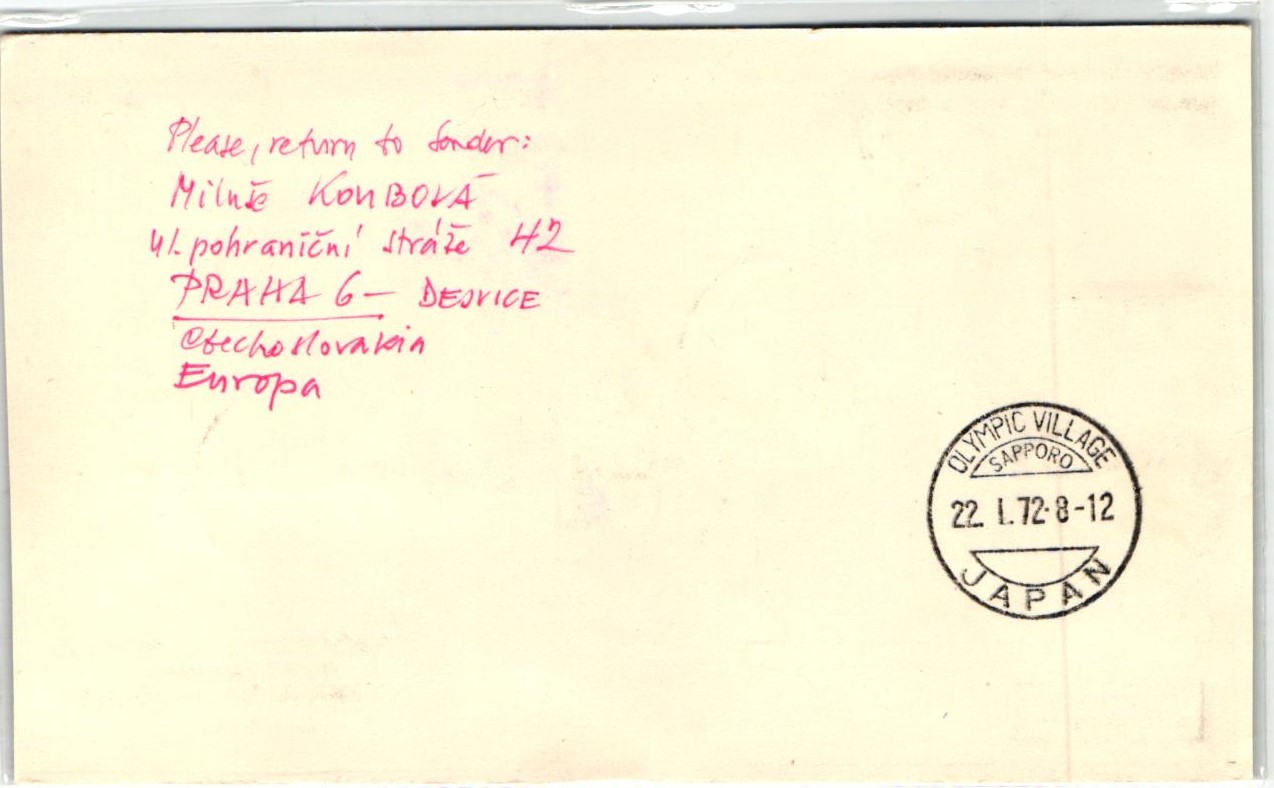 Please, return to Sender:
Miluše KOUBOVÁ
Ul. pohraniční stráže 42
PRAHA 6 - DEJVICE
Czechoslovakia
Europa
OLYMPIC VILLAGE
SAPPORO
22. I.72·8-12
JAPAN